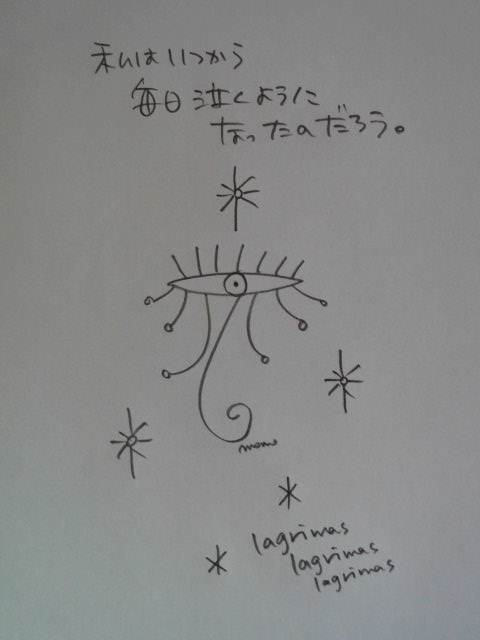 私はいつから
毎日泣くように
なったのだろう。
momo
lagrimas
lagrimas
lagrimas